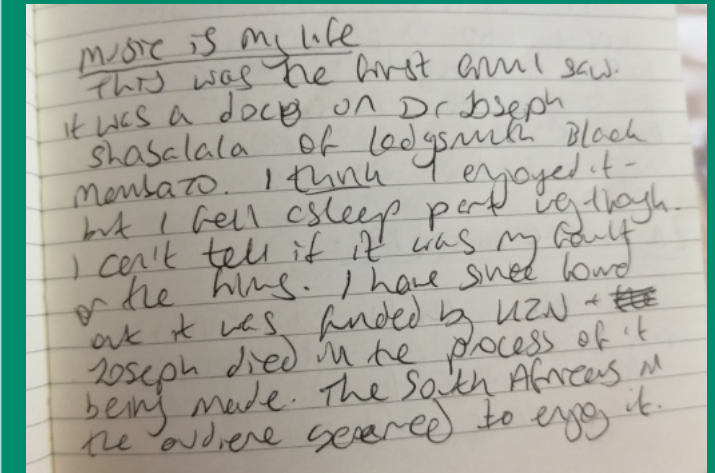 music is my life
This was the first film I saw.
it was a doco on Dr Joseph
Shabalala of Ladysmith Black
Mambazo. I think I enjoyed it -
but I fell asleep part way though.
I can't tell if it was my fault
or the films. I have since found
out it was funded by KZN +
Joseph died in the process of it
being made. The South Africans in
the audience seemed to enjoy it.